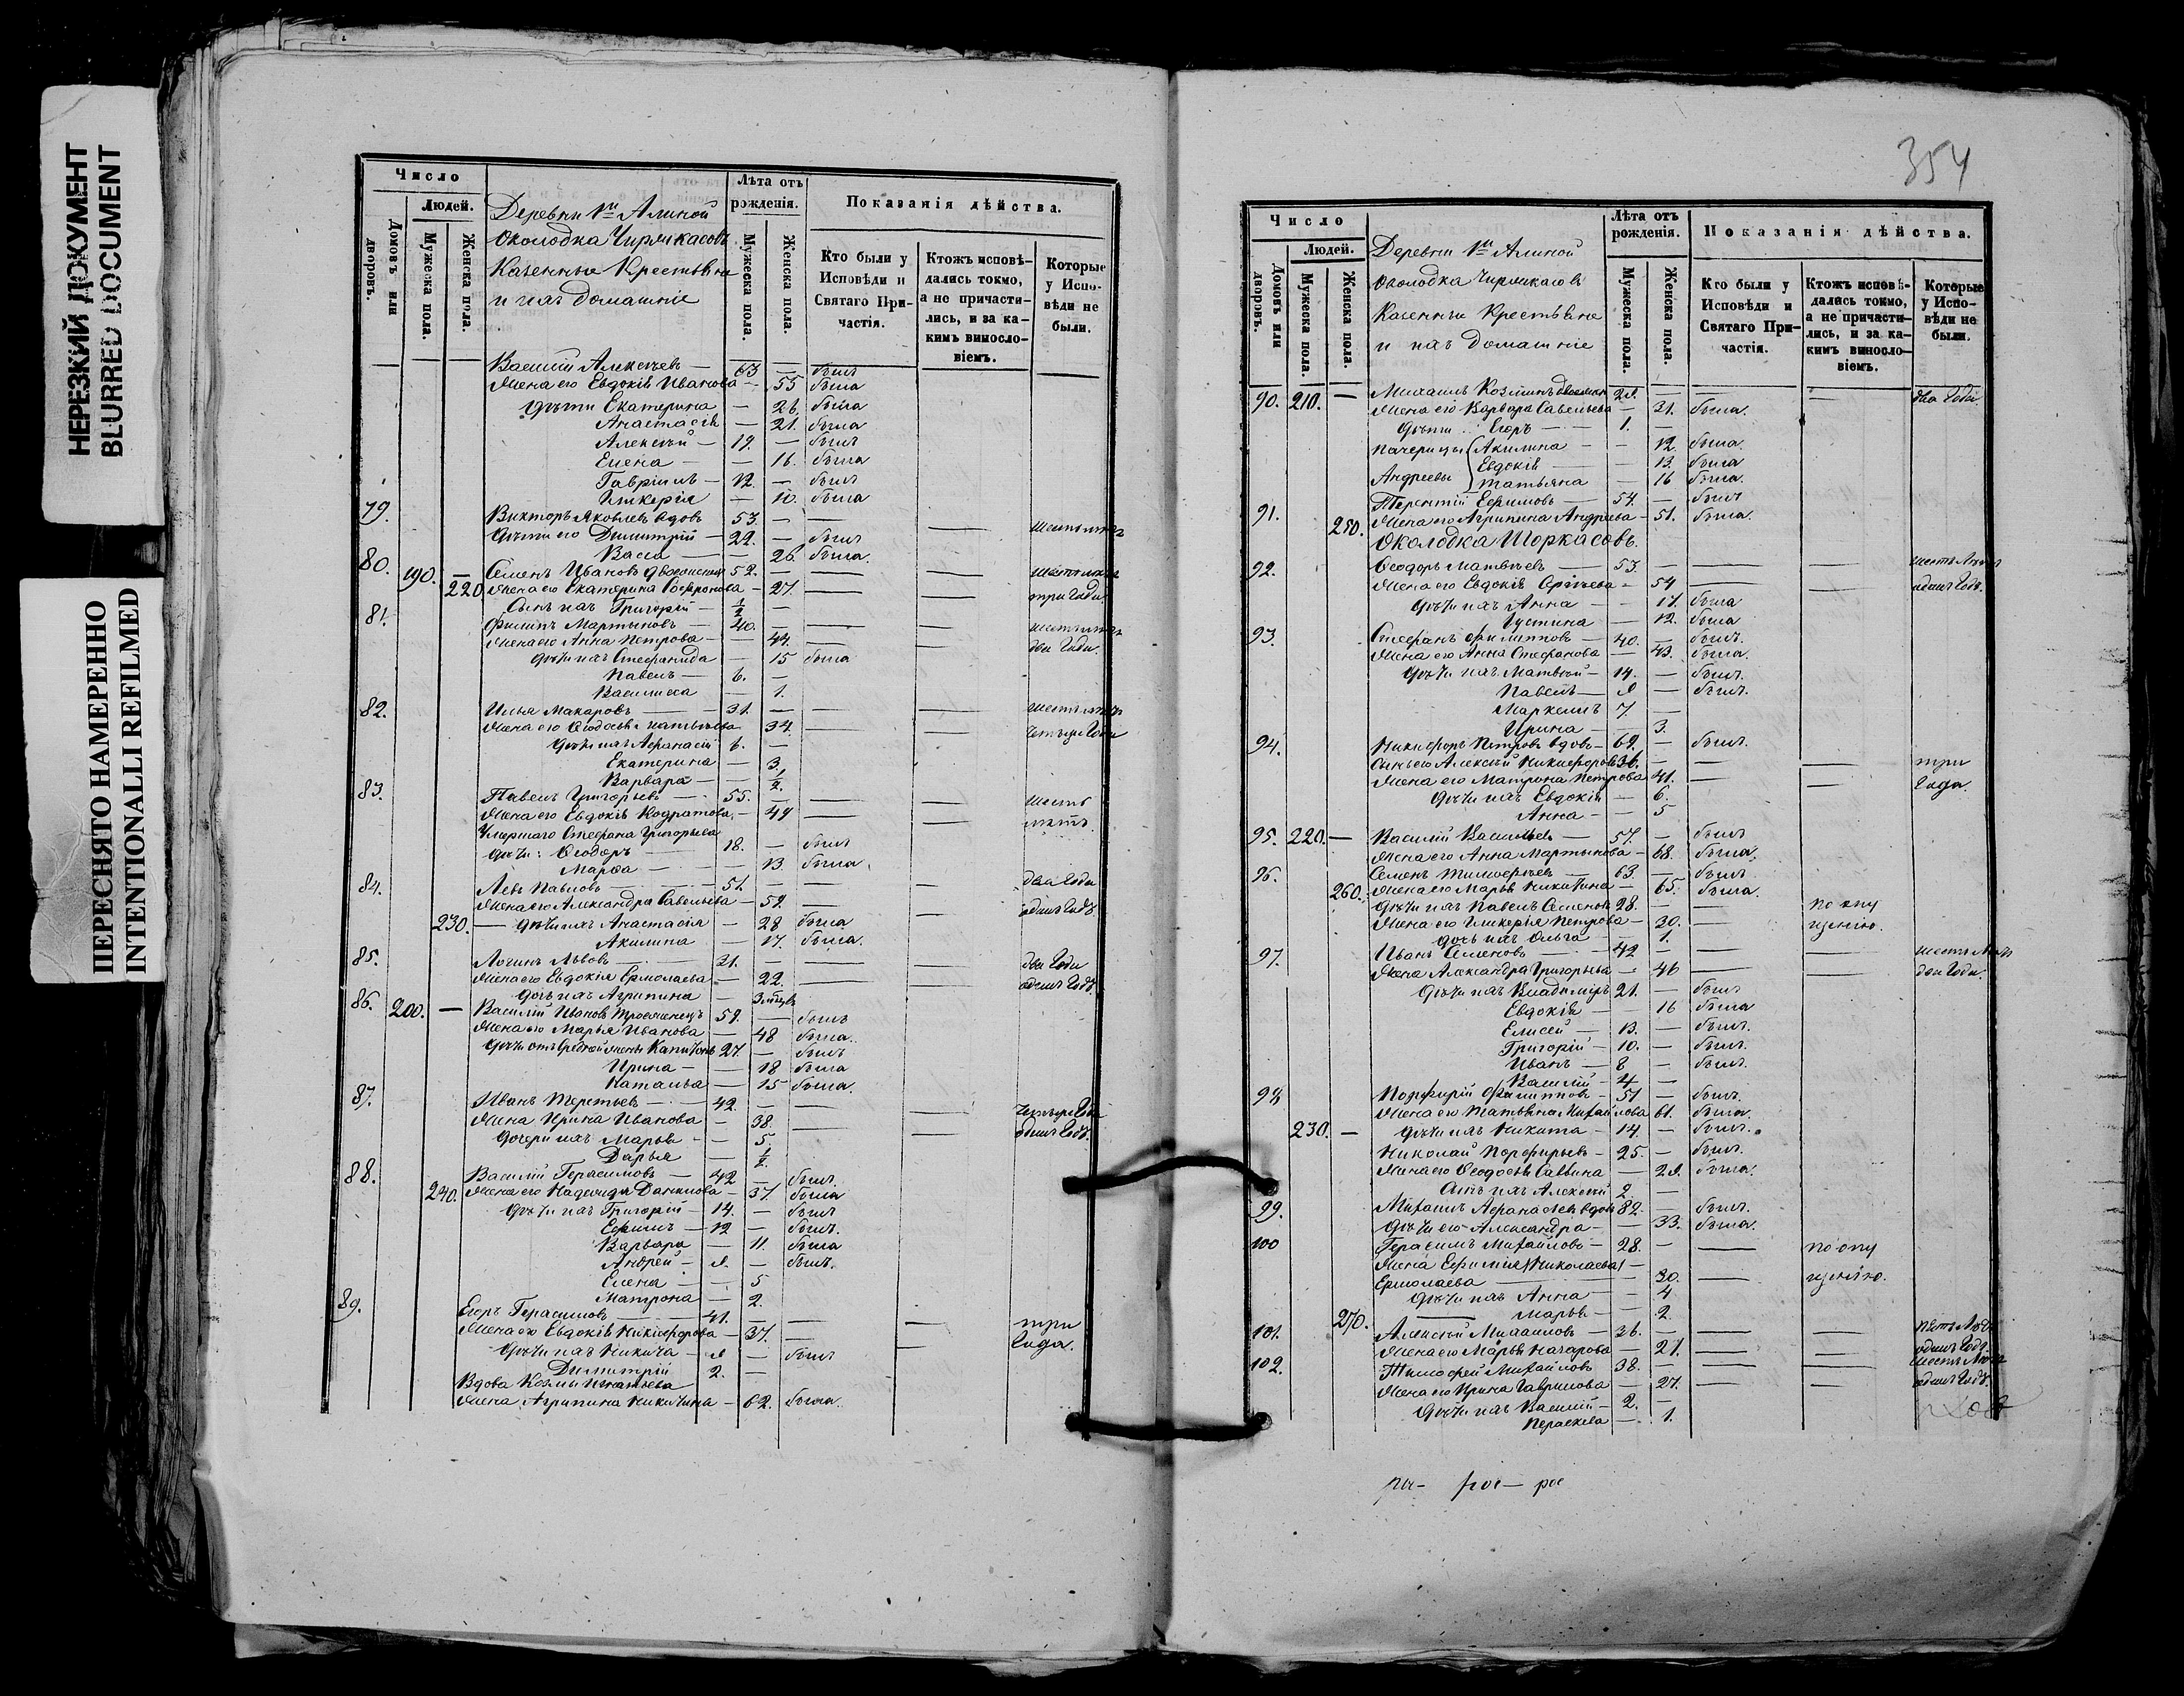 НЕРЕЗКИЙ ДОКУМЕНТ
BLURRED DOCUMENT
ПЕРЕСНЯТО НАМЕРЕННО
INTENTIONALLI REFILMED
Число
Людей.
Домовъ или дворовъ.
Мужеска пола.
Женска пола.
Деревни Алиной
околодка Чирмкасовъ
Казенные Крестьяне
и ихъ домашніе
Лѣта отъ рожденія.
Мужеска пола.
Женска пола.
Показанія дѣйства.
Кто были у Исповѣди и Святаго Причастія.
Ктожъ исповѣдались токмо, а не причастились, и за какимъ винословіемъ.
Которые у Исповѣди не были.
Василій Алексѣевъ — 63 — былъ
Жена его Евдокія Иванова — 55 была
Дѣти Екатерина — 26. была
Анастасія — 21. была
Алексѣй — 19. — былъ
Елена — 16. была
Гавріилъ — 12. — былъ
Гликерія — 10. была
79. Викторъ Яковлевъ вдовъ 53. — — — шесть лѣтъ
Дѣти его Димитрій — 22. — былъ
Васса — 26. была.
80. 190. — Семенъ Ивановъ 52. — — — шесть лѣтъ
220 Жена его Екатерина Софронова — 27. — — три года.
Сынъ ихъ Григорій — 1/2 —
81. Филипъ Мартыновъ — 40. — — — шесть лѣтъ
Жена его Анна Петрова — 44. — — два года.
Дѣти ихъ Стефанида — 15 была
Павелъ — 6. —
Василиса — 1.
82. Илья Макаровъ — 31. — — — шесть лѣтъ
Жена его Феодосья Матвѣева 34. — — четыре года
Дѣти ихъ Афанасій 6. —
Екатерина — 3.
Варвара — 1/2.
83. Павелъ Григорьевъ — 55. — — — шесть
Жена его Евдокія Кодратова. — 49 — — лѣтъ.
Умершаго Стефана Григорьева
дѣти: Феодоръ 18. — былъ
Марфа — 13 была.
84. Левъ Павловъ — 51. — — два года
Жена его Александра Савельева — 52. — — одинъ годъ.
230. — Дѣти ихъ Анастасія — 28 была
Акилина — 17. была.
85. Логинъ Львовъ — 21. — — — два года
Жена его Евдокія Ермолаева — 22. — — одинъ годъ.
дочь ихъ Агрипина — 3 мѣсяц
86. 200. — Василій Ивановъ троеженецъ 59. — былъ
Жена его Марья Иванова — 48 была.
Дѣти отъ средней жены Капитонъ 27. — былъ
Ирина — 18 была
Наталья — 15 была.
87. Иванъ Терентьевъ — 42. — — — четыре года
Жена Ирина Иванова — 38. — — одинъ годъ.
Дочери ихъ Марья — 5.
Дарья — 1/2.
88. Василій Герасимовъ — 42 — былъ.
240. Жена его Надежда Данилова — 37. была
Дѣти ихъ Григорій — 14. — былъ
Ефимъ — 12 — былъ.
Варвара — 11. была
Андрей — 9. — былъ.
Елена — 5
Матрона — 2.
89. Егоръ Герасимовъ — 41. — — — три
Жена его Евдокія Никифорова — 37. — — года.
Дѣти ихъ Никита — 9 — былъ
Димитрій 2. —
Вдова Козмы Игнатьева
жена Агрипина Никитина — 62. была.
354
Число
Людей.
Домовъ или дворовъ.
Мужеска пола.
Женска пола.
Деревни Алиной
околодка Чирмкасовъ
Казенные Крестьяне
и ихъ домашніе
Лѣта отъ рожденія.
Мужеска пола.
Женска пола.
Показанія дѣйства.
Кто были у Исповѣди и Святаго Причастія.
Ктожъ исповѣдались токмо, а не причастились, и за какимъ винословіемъ.
Которые у Исповѣди не были.
90. 210. — Михаилъ Козминъ 29. — — — два года.
Жена его Варвара Савельева — 31. была.
Дѣти: Егоръ — 1. —
Падчерицы Акилина — 12. была.
Евдокія — 13. была
Андреевы Татьяна — 16 была.
91. Терентій Ефимовъ — 54. — былъ
250. Жена его Агрипина Андреева — 51. была.
околодка Шоркасовъ.
92. Феодоръ Матвѣевъ — 53. — — — шесть лѣтъ
Жена его Евдокія Сергѣева — 54 — — одинъ годъ.
Дѣти ихъ Анна — 17. была
Іустина — 12. была
93. Стефанъ Филипповъ — 40. — былъ.
Жена его Анна Стефанова — 43. была.
Дѣти ихъ Матвѣй — 14. — былъ.
Павелъ — 9 — былъ.
Маркелъ 7. —
Ирина — 3.
94. Никифоръ Петровъ вдовъ — 69. — былъ.
Сынъ его Алексѣй Никифоровъ 36. — — — три
Жена его Матрона Петрова 41. — — года.
Дѣти ихъ Евдокія — 6.
Анна — 5
95. 220. — Василій Васильевъ — 57. — былъ
Жена его Анна Мартынова — 68. была.
96. Семенъ Тимофеевъ — 63. — былъ
260. Жена его Марья Никитина — 65. была.
Дѣти ихъ Павелъ Семеновъ 28. — — по опу
Жена его Гликерія Петрова — 30. — щенію.
дочь ихъ Ольга — 1.
97. Иванъ Семеновъ — 42 — — — шесть лѣтъ
Жена Александра Григорьева — 46 — — два года.
Дѣти ихъ Владимиръ 21. — былъ
Евдокія — 16 была
Елисей — 13. — былъ.
Григорій — 10. — былъ.
Иванъ — 8 — былъ.
Василій — 4 —
98 Порфирій Филипповъ — 51 — былъ.
Жена его Татьяна Михайлова 61. была.
230. — Дѣти ихъ Никита — 14. — былъ.
Николай Порфирьевъ — 25. — былъ.
Жена его Феодосья Саввина — 29. была.
Сынъ ихъ Алексѣй 2. —
99. Михаилъ Афанасьевъ вдовъ 82. — былъ.
Дѣти его Александра — 33. была.
100 Герасимъ Михайловъ — 28. — — по опу
Жена Ефимия (Николаева) —
Ермолаева — 30. — щенію.
Дѣти ихъ Анна — 4
270. Марья — 2.
101. Алексѣй Михаиловъ — 36. — — — пять лѣтъ
Жена его Марья Назарова — 27. — — одинъ годъ.
102. Тимофей Михайловъ 38. — — — шесть лѣтъ
Жена его Ирина Гаврилова — 27. — — одинъ годъ.
Дѣти ихъ Василій — 2. —
Пераскева — 1.